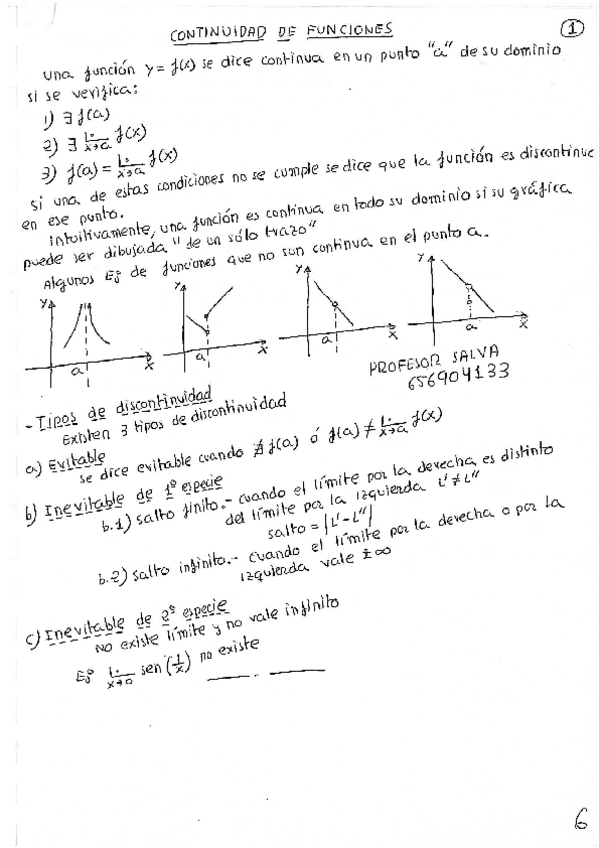 CONTINUIDAD DE FUNCIONES
1
Una función y = f(x) se dice continua en un punto "a" de su dominio
si se verifica:
1) ∃ f(a)
2) ∃ lím x→a f(x)
3) f(a) = lím x→a f(x)
si una de estas condiciones no se cumple se dice que la función es discontinua
en ese punto.
Intuitivamente, una función es continua en todo su dominio si su gráfica
puede ser dibujada "de un sólo trazo"
Algunos Ej: de funciones que no son continua en el punto a.
y a x
y a x
y a x
y a x
PROFESOR SALVA
656904133
- Tipos de discontinuidad
Existen 3 tipos de discontinuidad
a) Evitable
se dice evitable cuando ∄ f(a) ó f(a) ≠ lím x→a f(x)
b) Inevitable de 1ª especie
b.1) salto finito.- cuando el límite por la derecha es distinto
del límite por la izquierda L' ≠ L''
salto = |L' - L''|
b.2) salto infinito.- cuando el límite por la derecha o por la
izquierda vale ±∞
c) Inevitable de 2ª especie
No existe límite y no vale infinito
Ej: lím x→0 sen (1/x) no existe
6